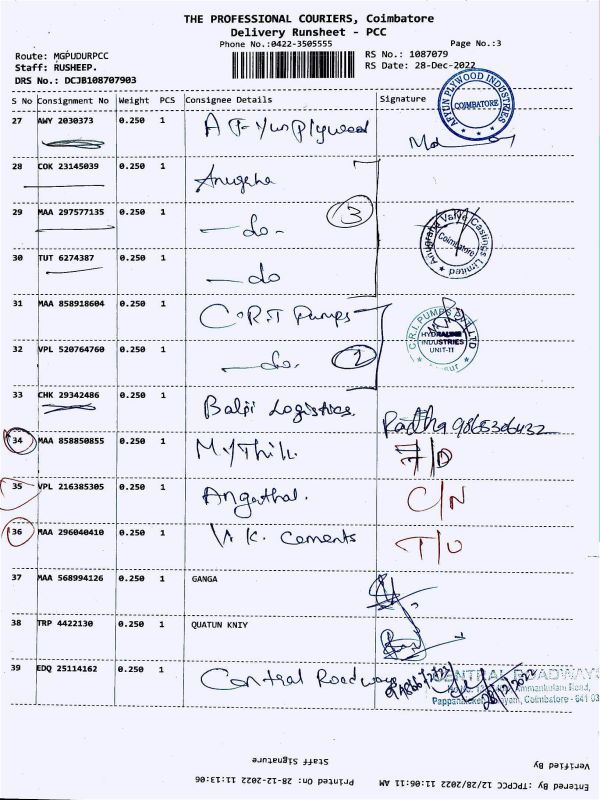 THE PROFESSIONAL COURIERS, Coimbatore
Delivery Runsheet - PCC
Phone No.:0422-3505555
Page No.:3
Route: MGPUDURPCC
RS No.: 1087079
Staff: RUSHEEP.
RS Date: 28-Dec-2022
DRS No.: DCJB108707903
S No Consignment No Weight PCS Consignee Details Signature
AFYUN PLYWOOD INDUSTRIES
COIMBATORE
27 AWY 2030373 0.250 1
28 COK 23145039 0.250 1 Anugraha
29 MAA 297577135 0.250 1 -do- 3
Anugraha Valve Castings Limited
Coimbatore
30 TUT 6274387 0.250 1 -do
31 MAA 858918604 0.250 1 C.R.I Pumps
C.R.I. PUMPS PVT LTD
HYDRAULINE
INDUSTRIES
UNIT-II
32 VPL 520764760 0.250 1 -do. 2
33 CHK 29342486 0.250 1 Logistics. Radha
34 MAA 858850855 0.250 1 F/D
35 VPL 216385305 0.250 1 Angathal. C/N
36 MAA 296040410 0.250 1 V.K. Cements T/O
37 MAA 568994126 0.250 1 GANGA
38 TRP 4422130 0.250 1 QUATUN KNIY
39 EDQ 25114162 0.250 1 Central Roadways
CENTRAL ROADWAYS
Coimbatore - 641 03
28/12/2022
Staff Signature
Verified By
Printed On: 28-12-2022 11:13:06
Entered By: TPCPCC 12/28/2022 11:06:11 AM